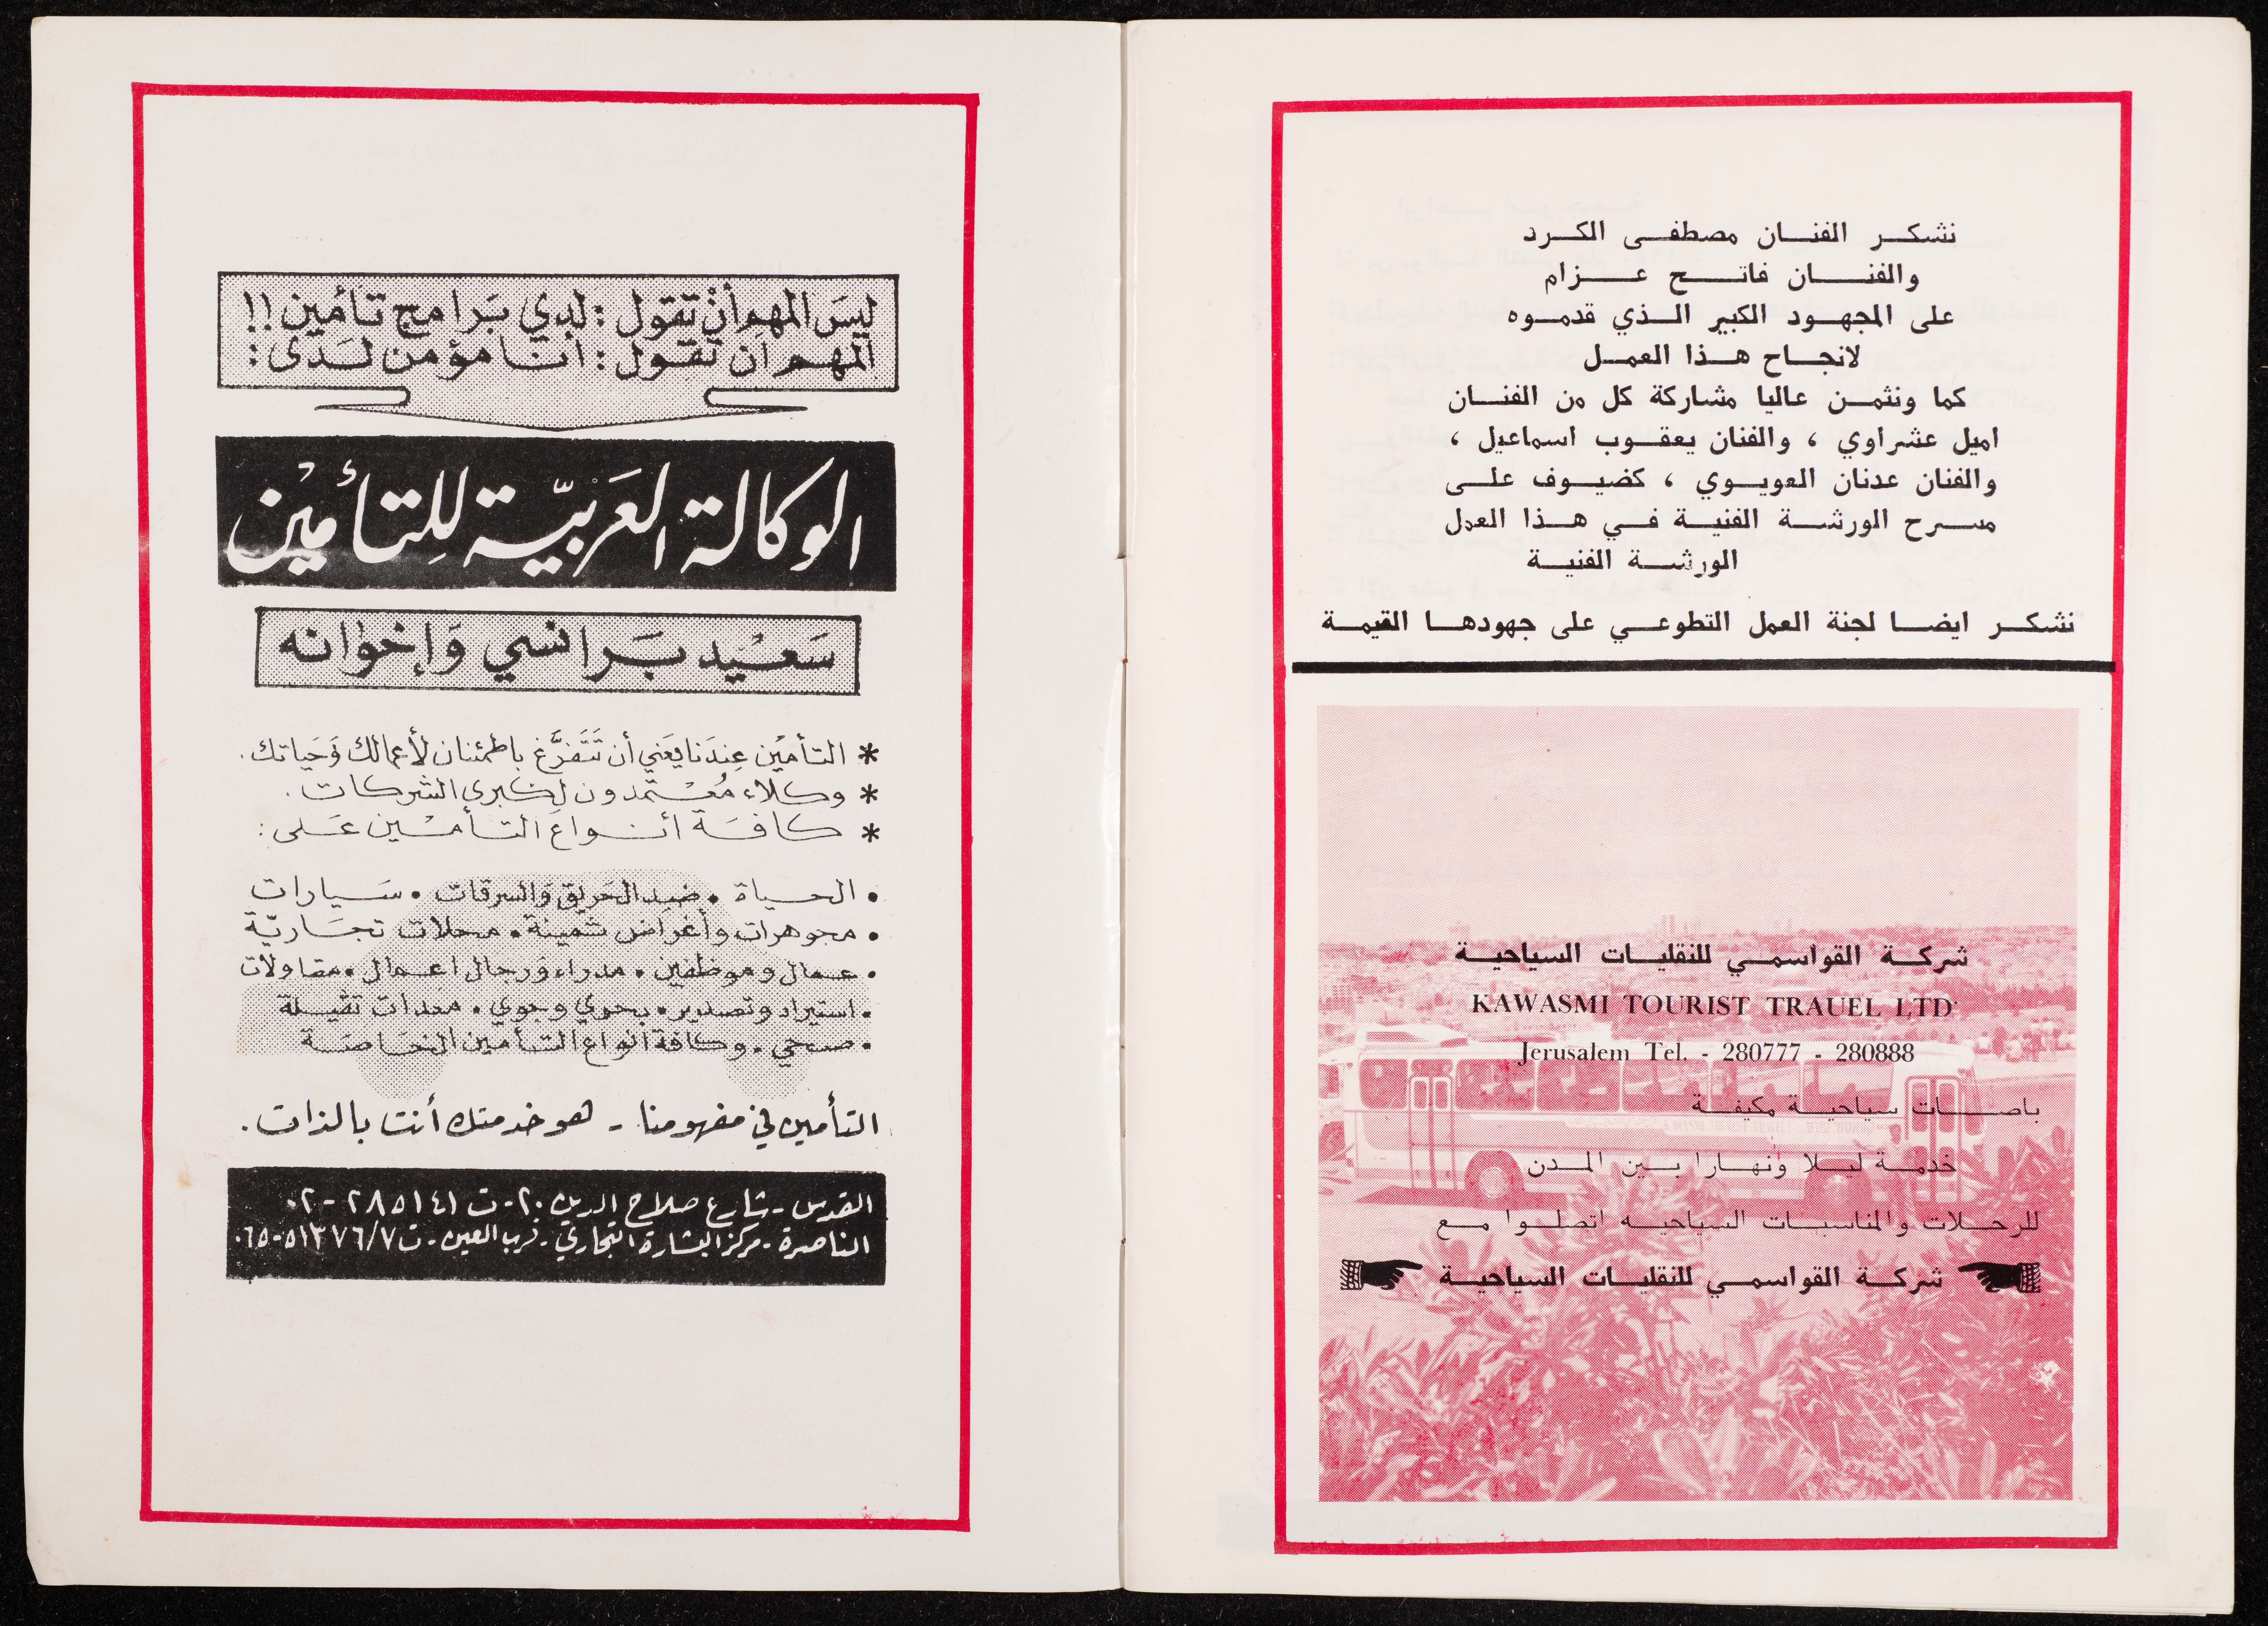 نشكر الفنان مصطفى الكرد
والفنان فاتح عزام
على المجهود الكبير الذي قدموه
لانجاح هذا العمل
كما ونثمن عاليا مشاركة كل من الفنان
اميل عشراوي ، والفنان يعقوب اسماعيل ،
والفنان عدنان العويوي ، كضيوف على
مسرح الورشة الفنية في هذا العمل
الورشة الفنية
نشكر ايضا لجنة العمل التطوعي على جهودها القيمة
شركة القواسمي للنقليات السياحية
KAWASMI TOURIST TRAUEL LTD
Jerusalem Tel. - 280777 - 280888
باصات سياحية مكيفة
خدمة ليلا ونهارا بين المدن
للرحلات والمناسبات السياحيه اتصلوا مع
شركة القواسمي للنقليات السياحية
ليسَ المهم أنْ تقول : لدي بَرامج تأمين !!
المهم ان تقول : انا مؤمن لَدى :
الوكالة العَربيّة للِتأمين
سَعيْد بَرانسي وَإخوَانه
* التأمين عِندَنا يَعني أن تَتَفرَّغ باطمئنان لأعمالك وَحَياتك .
* وكلاء مُعْتمدون لِكبرى الشركات .
* كافَة أنواعَ التأمسْين عَلى :
• الحياة • ضد الحَريق وَالسرقات • سَيارات
• مجوهرات وأغراض ثمينة • محلات تجَاريّة
• عمال وموظفين • مدراء وَرجال اعمال • مقاولات
• استيراد وتصدير • بحري وجوي • معدات ثقيلة
• صحي • وكافة انواع التأمين الخاصَة
التأمين في مفهومنا - هو خدمتك أنت بالذات .
القدس - شارع صلاح الدين ٢٠ - ت ٢٨٥١٤١ - ٠٢
الناصرة - مركز البشارة التجاري - قرب العين - ت ٥١٣٧٦/٧ - ٠٦٥